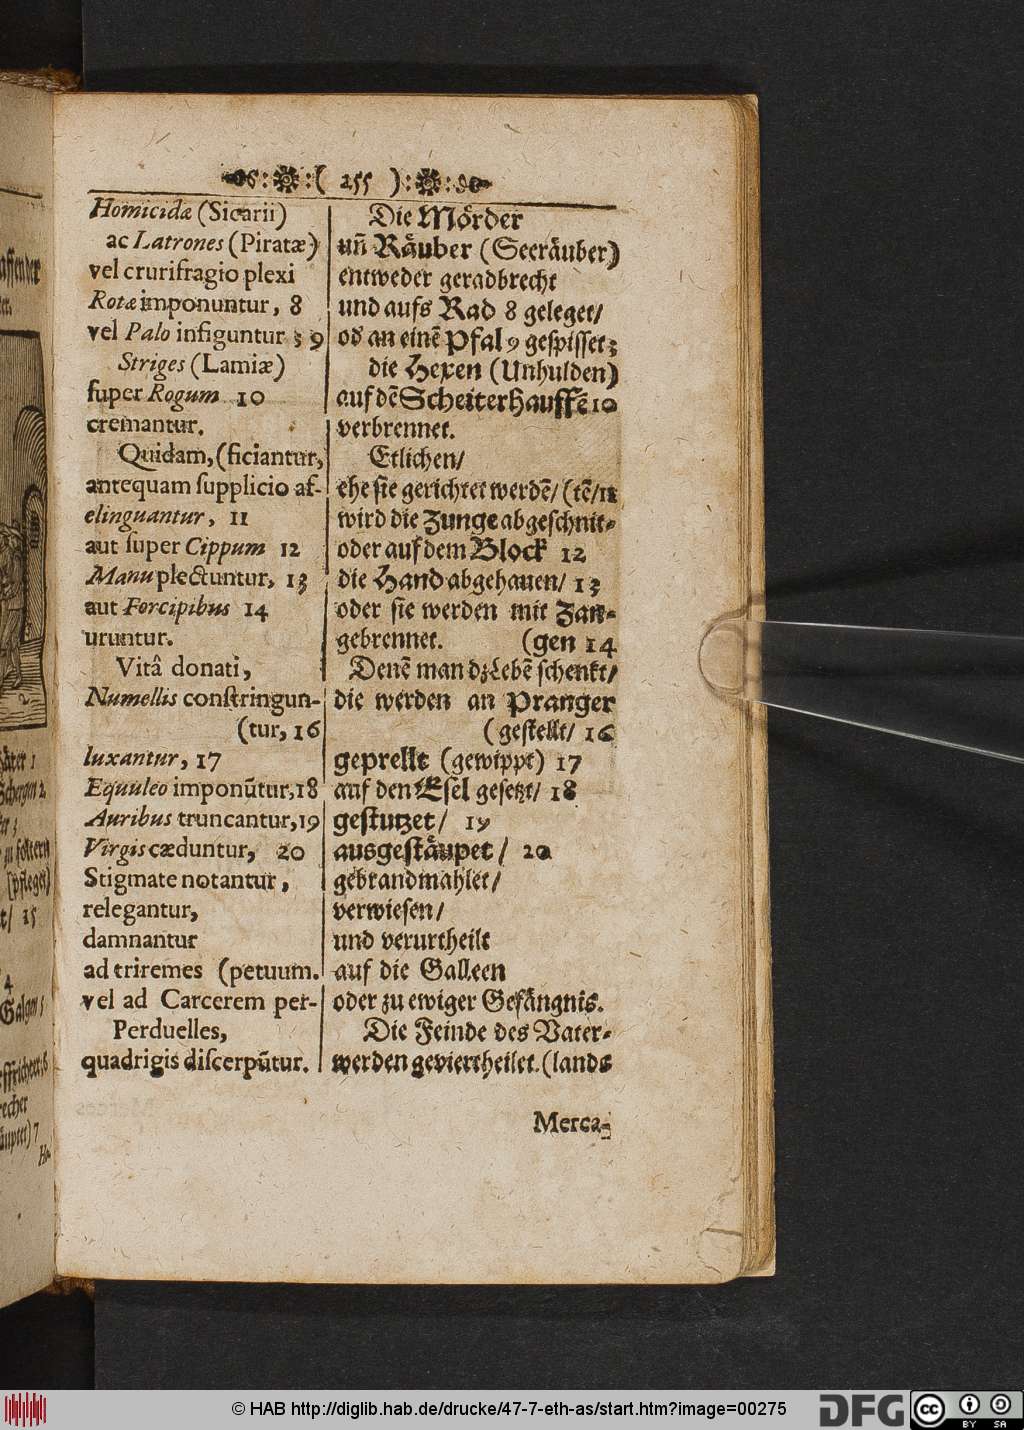 :( 255 ):
Homicidæ (Sicarii)
ac Latrones (Piratæ)
vel crurifragio plexi
Rotæ imponuntur, 8
vel Palo infiguntur ; 9
Striges (Lamiæ)
ſuper Rogum 10
cremantur.
Quidam, (ficiantur,
antequam ſupplicio af-
elinguantur, 11
aut ſuper Cippum 12
Manu plectuntur, 13
aut Forcipibus 14
uruntur.
Vitâ donati,
Numellis conſtringun-
(tur, 16
luxantur, 17
Equuleo imponũtur, 18
Auribus truncantur, 19
Virgis cæduntur, 20
Stigmate notantur,
relegantur,
damnantur
ad triremes (petuum.
vel ad Carcerem per-
Perduelles,
quadrigis diſcerpũtur.
Die Mörder
uñ Räuber (Seeräuber)
entweder geradbrecht
und aufs Rad 8 geleget/
od an einẽ Pfal 9 geſpiſſet;
die Hexen (Unhulden)
auf dẽ Scheiterhauffẽ 10
verbrennet.
Etlichen/
ehe ſie gerichtet werdẽ/ (tẽ/11
wird die Zunge abgeſchnit-
oder auf dem Block 12
die Hand abgehauen/ 13
oder ſie werden mit Zan-
gebrennet. (gen 14
Denẽ man dz Lebẽ ſchenkt/
die werden an Pranger
(geſtellt/ 16
geprellt (gewippt) 17
auf den Eſel geſetzt/ 18
geſtutzet/ 19
ausgeſtäupet/ 20
gebrandmahlet/
verwieſen/
und verurtheilt
auf die Galleen
oder zu ewiger Gefängnis.
Die Feinde des Vater-
werden geviertheilet. (lands
Merca-
© HAB http://diglib.hab.de/drucke/47-7-eth-as/start.htm?image=00275
DFG
cc BY SA